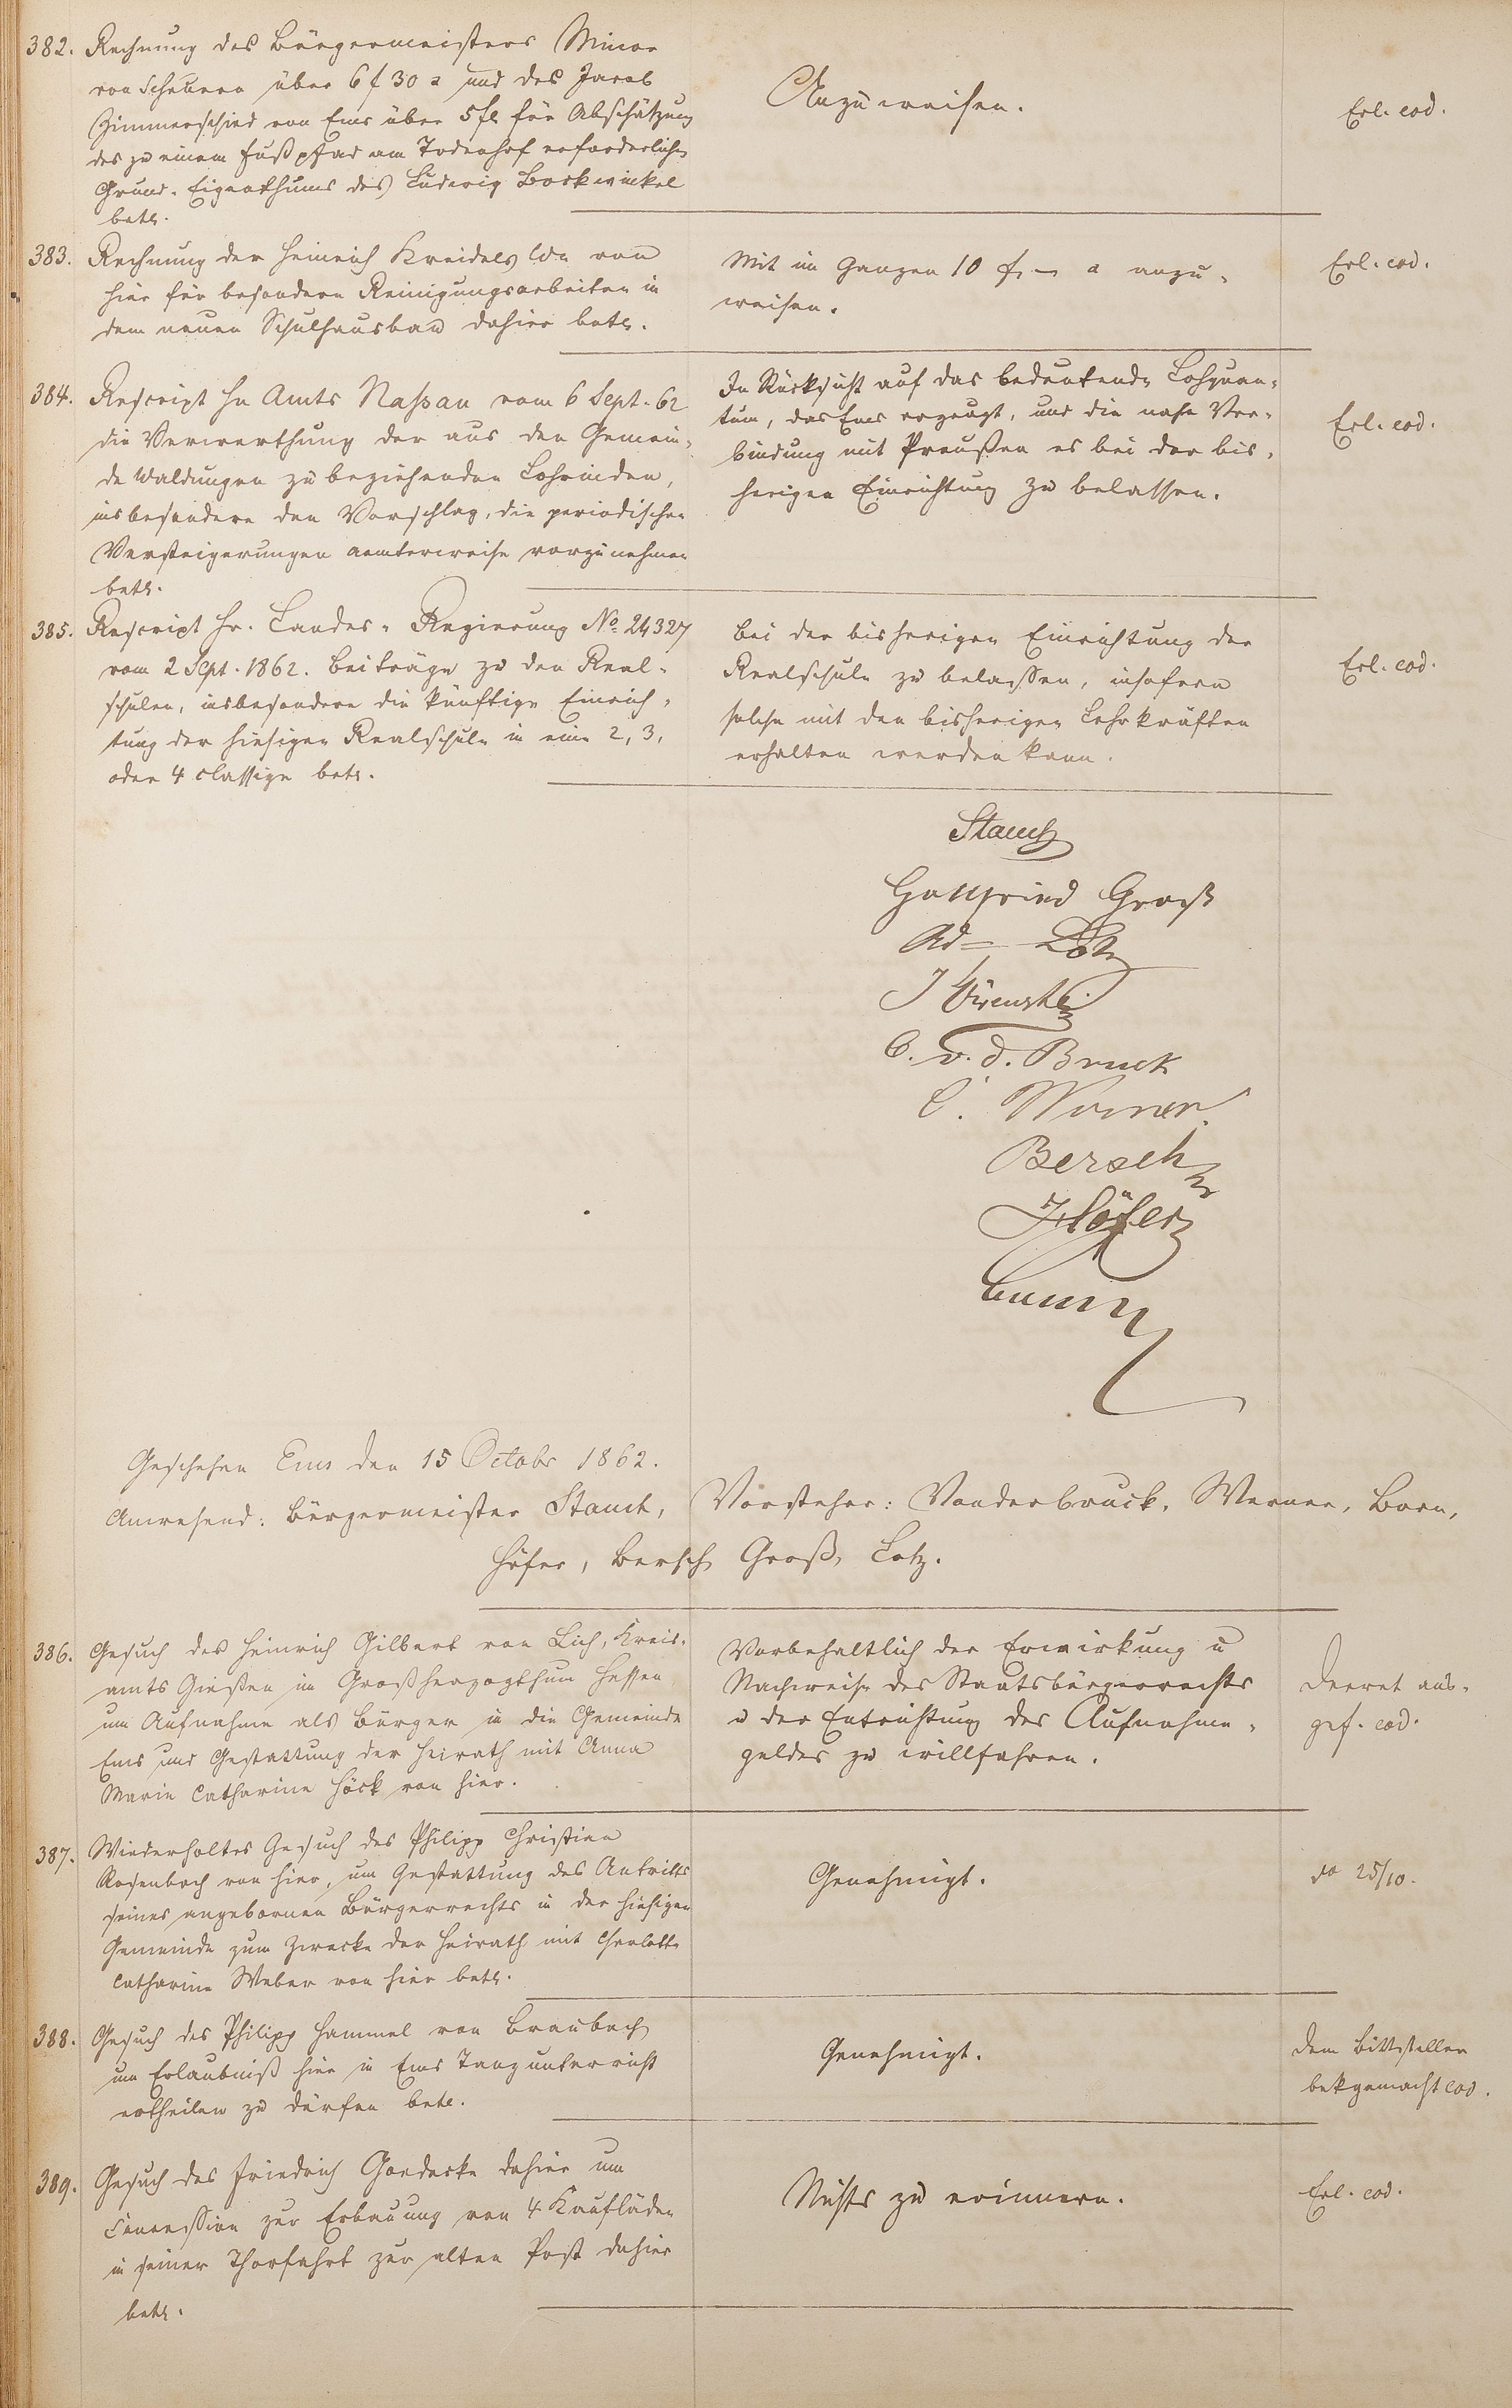 382. Rechnung des Bürgermeisters Minor
von Scheuern über 6 f 30 x und des Jacob
Zimmerschied von Ems über 5 fl für Abschätzung
des zu einem Fußpfad am Todenhof erforderlichen
Grund-Eigenthums des Ludwig Bockwinkel
betr.
Anzuweisen.
Erl. eod.
383. Rechnung der Heinrich Kreidels Wn von
hier für besondere Reinigungsarbeiten in
dem neuen Schulhausbau dahier betr.
Mit im Ganzen 10 f. — x anzu-
weisen.
Erl. eod.
384. Rescript Hn Amts Naßau vom 6 Sept. 62
die Verwerthung der aus den Gemein-
de Waldungen zu beziehenden Lohrinden,
insbesondere den Vorschlag, die periodischen
Versteigerungen aemterweise vorzunehmen
betr.
In Rücksicht auf das bedeutende Lohquan-
tum, das Ems erzeugt, und die nahe Ver-
bindung mit Preußen es bei der bis-
herigen Einrichtung zu belassen.
Erl. eod.
385. Rescript Hr. Landes-Regierung No 24327
vom 2 Sept. 1862. Beiträge zu den Real-
schulen, insbesondere die künftige Einrich-
tung der hiesigen Realschule in eine 2, 3,
oder 4 classige betr.
Bei der bisherigen Einrichtung der
Realschule zu belassen, insofern
solche mit den bisherigen Lehrkräften
erhalten werden kann.
Erl. eod.
Stauch
Gottfried Groß
Ad= Lotz
C. v. d. Bruck
C. Werner.
Bersch
Höfer
Geschehen Ems den 15 Octobr 1862.
Anwesend: Bürgermeister Stauch, Vorsteher: Vonderbruck, Werner, Born,
Höfer, Bersch, Groß, Lotz.
386. Gesuch des Heinrich Gilbert von Lich, Kreis-
amts Gießen im Großherzogthum Hessen
um Aufnahme als Bürger in die Gemeinde
Ems und Gestattung der Heirath mit Anna
Marie Catharine Höck von hier.
Vorbehaltlich der Erwirkung u
Nachweise des Staatsbürgerrechts
u der Entrichtung des Aufnahme-
geldes zu willfahren.
Decret aus-
gef. eod.
387. Wiederholtes Gesuch des Philipp Christian
Rosenbach von hier, um Gestattung des Antritts
seines angebornen Bürgerrechts in der hiesigen
Gemeinde zum Zwecke der Heirath mit Charlotte
Catharine Weber von hier betr.
Genehmigt.
do 25/10.
388. Gesuch des Philipp Hammel von Braubach
um Erlaubniß hier in Ems Tanzunterricht
ertheilen zu dürfen betr.
Genehmigt.
Dem Bittsteller
bekgemacht eod.
389. Gesuch des Friedrich Goedecke dahier um
Concession zur Erbauung von 4 Kaufläden
in seiner Thorfahrt zur alten Post dahier
betr.
Nichts zu erinnern.
Erl. eod.